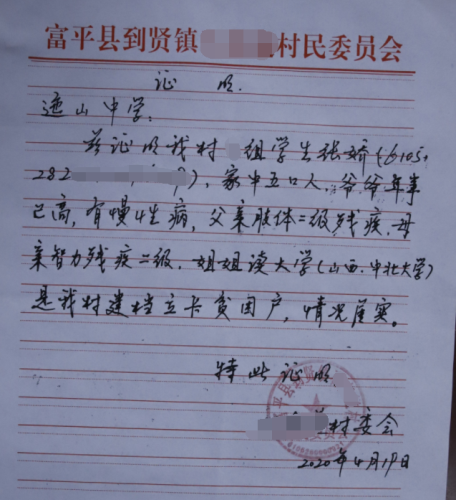 富平县到贤镇村民委员会
证明.
迤山中学:
兹证明我村组学生张娇(6105
282), 家中五口人, 爷爷年事
已高, 有慢性病, 父亲肢体二级残疾, 母
亲智力残疾二级. 姐姐读大学(山西.中北大学)
是我村建档立卡贫困户, 情况属实。
特此证明.
村委会
2020年4月19日